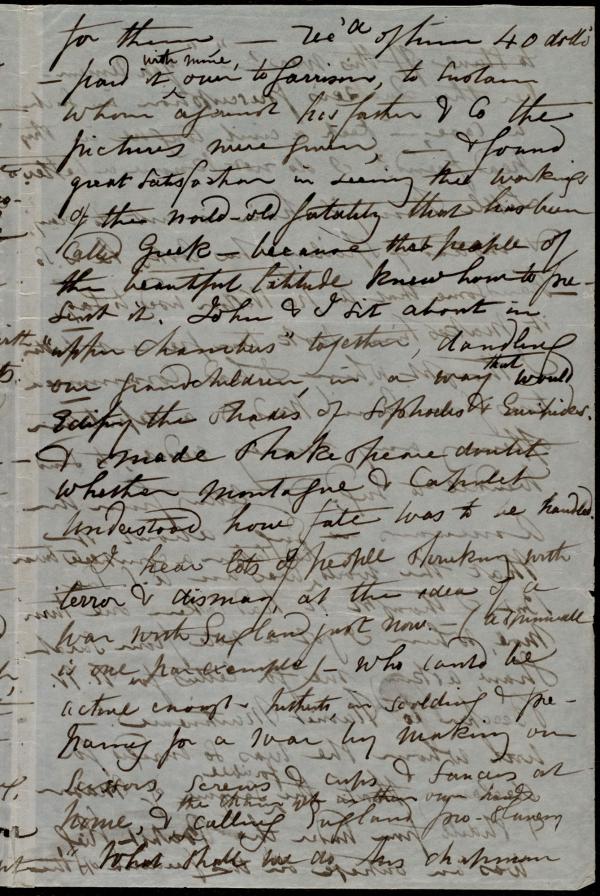 for them — rec'd of him 40 dolls
— paid it, with mine, over to Garrison, to sustain
whom against his father & Co the
pictures were given, — & found
great satisfaction in seeing the workings
of the world-old fatality that has been
called Greek — because that people of
the beautiful latitude knew how to pre-
sent it. John & I sit about in
"upper chambers" together, dandling
our grandchildren, in a way that would
edify the shades of Sophocles & Euripides.
& made Shakespeare doubt
whether Montague & Capulet
understood how fate was to be handled.
I hear lots of people shrieking with
terror & dismay, at the idea of a
war with England just now. — (
is one par exemple) — who could be
active enough in scolding & pre-
paring for a war by making our
scissors, screws, & cups & saucers at
home, & calling England pro-slavery
the things with their own hands
What shall we do Mrs Chapman